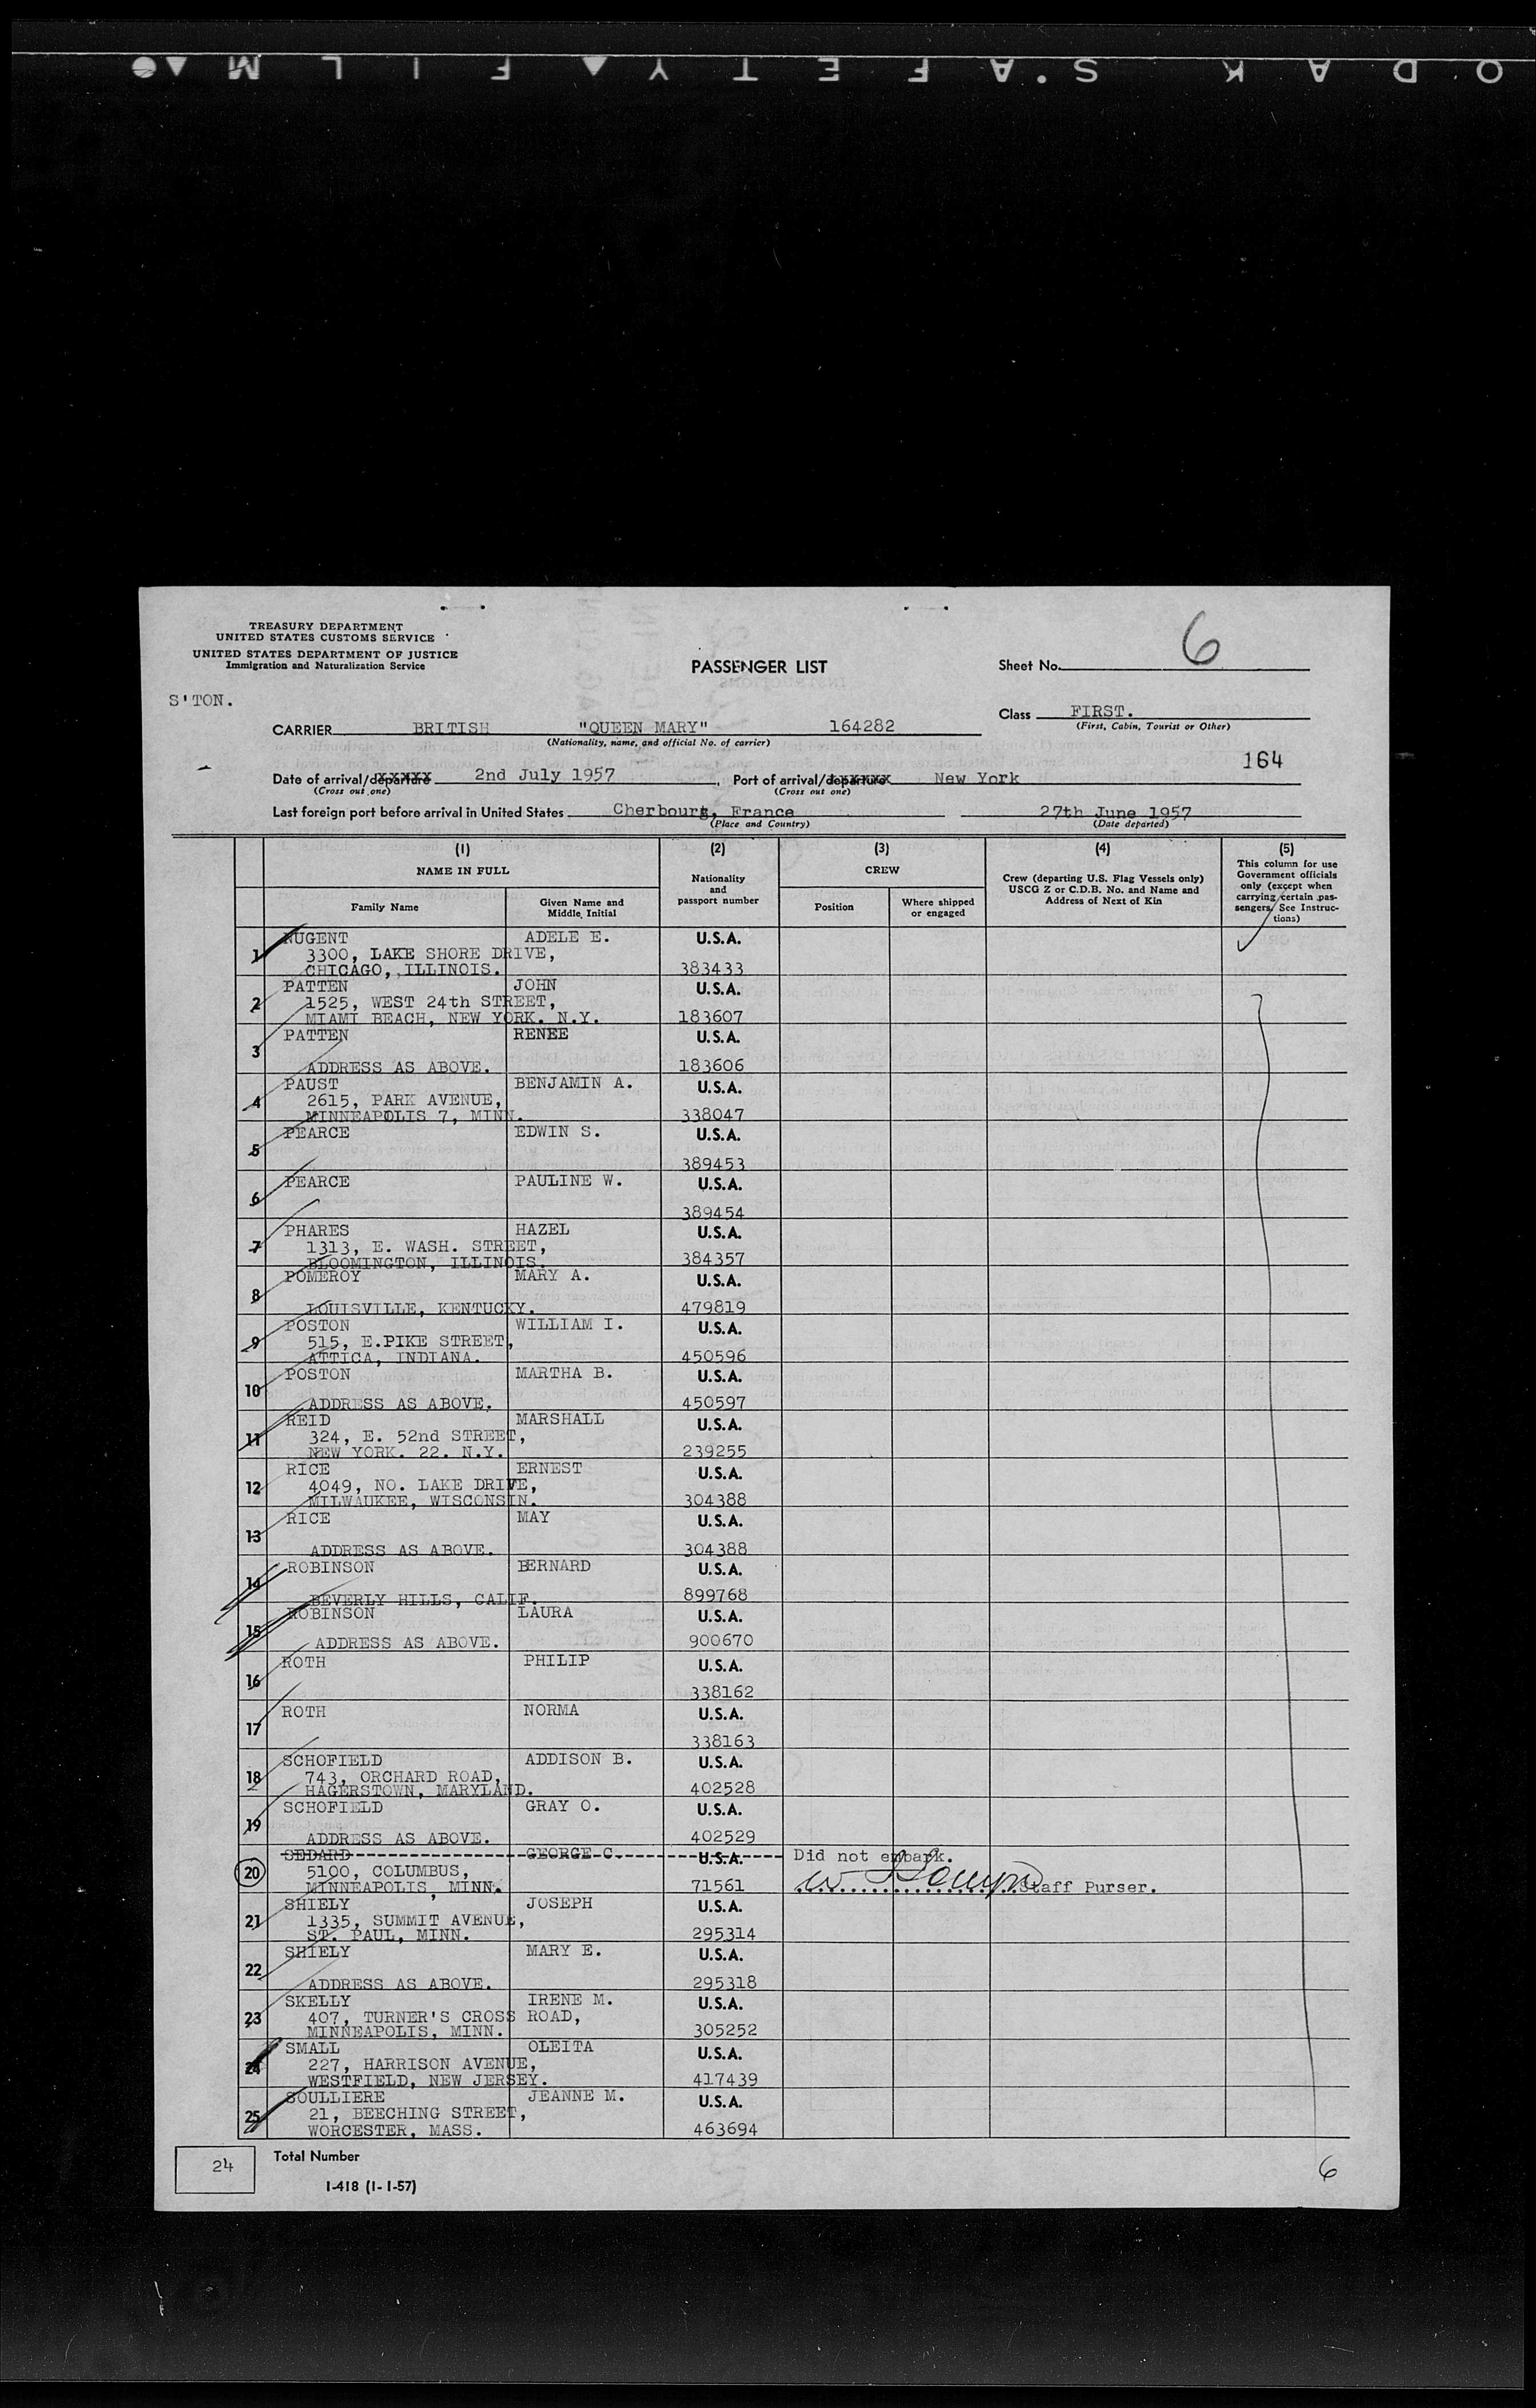 KODAK SAFETY FILM
TREASURY DEPARTMENT
UNITED STATES CUSTOMS SERVICE
UNITED STATES DEPARTMENT OF JUSTICE
Immigration and Naturalization Service
PASSENGER LIST
Sheet No. 6
S'TON.
Class FIRST.
(First, Cabin, Tourist or Other)
CARRIER BRITISH "QUEEN MARY" 164282
(Nationality, name, and official No. of carrier)
164
Date of arrival/departure 2nd July 1957, Port of arrival/departure New York
(Cross out one) (Cross out one)
Last foreign port before arrival in United States Cherbourg, France 27th June 1957
(Place and Country) (Date departed)
(1) (2) (3) (4) (5)
NAME IN FULL Nationality and passport number CREW Crew (departing U.S. Flag Vessels only) USCG Z or C.D.B. No. and Name and Address of Next of Kin This column for use Government officials only (except when carrying certain passengers. See Instructions)
Family Name Given Name and Middle Initial Position Where shipped or engaged
1 NUGENT ADELE E. U.S.A.
3300, LAKE SHORE DRIVE,
CHICAGO, ILLINOIS. 383433
2 PATTEN JOHN U.S.A.
1525, WEST 24th STREET,
MIAMI BEACH, NEW YORK. N.Y. 183607
3 PATTEN RENEE U.S.A.
ADDRESS AS ABOVE. 183606
4 PAUST BENJAMIN A. U.S.A.
2615, PARK AVENUE,
MINNEAPOLIS 7, MINN. 338047
5 PEARCE EDWIN S. U.S.A.
389453
6 PEARCE PAULINE W. U.S.A.
389454
7 PHARES HAZEL U.S.A.
1313, E. WASH. STREET,
BLOOMINGTON, ILLINOIS. 384357
8 POMEROY MARY A. U.S.A.
LOUISVILLE, KENTUCKY. 479819
9 POSTON WILLIAM I. U.S.A.
515, E.PIKE STREET,
ATTICA, INDIANA. 450596
10 POSTON MARTHA B. U.S.A.
ADDRESS AS ABOVE. 450597
11 REID MARSHALL U.S.A.
324, E. 52nd STREET,
NEW YORK. 22. N.Y. 239255
12 RICE ERNEST U.S.A.
4049, NO. LAKE DRIVE,
MILWAUKEE, WISCONSIN. 304388
13 RICE MAY U.S.A.
ADDRESS AS ABOVE. 304388
14 ROBINSON BERNARD U.S.A.
BEVERLY HILLS, CALIF. 899768
15 ROBINSON LAURA U.S.A.
ADDRESS AS ABOVE. 900670
16 ROTH PHILIP U.S.A.
338162
17 ROTH NORMA U.S.A.
338163
18 SCHOFIELD ADDISON B. U.S.A.
743, ORCHARD ROAD,
HAGERSTOWN, MARYLAND. 402528
19 SCHOFIELD GRAY O. U.S.A.
ADDRESS AS ABOVE. 402529
20 SEDARD GEORGE C. U.S.A. Did not embark.
5100, COLUMBUS,
MINNEAPOLIS, MINN. 71561 Staff Purser.
21 SHIELY JOSEPH U.S.A.
1335, SUMMIT AVENUE,
ST. PAUL, MINN. 295314
22 SHIELY MARY E. U.S.A.
ADDRESS AS ABOVE. 295318
23 SKELLY IRENE M. U.S.A.
407, TURNER'S CROSS ROAD,
MINNEAPOLIS, MINN. 305252
24 SMALL OLEITA U.S.A.
227, HARRISON AVENUE,
WESTFIELD, NEW JERSEY. 417439
25 SOULLIERE JEANNE M. U.S.A.
21, BEECHING STREET,
WORCESTER, MASS. 463694
24 Total Number
I-418 (1-1-57)
6